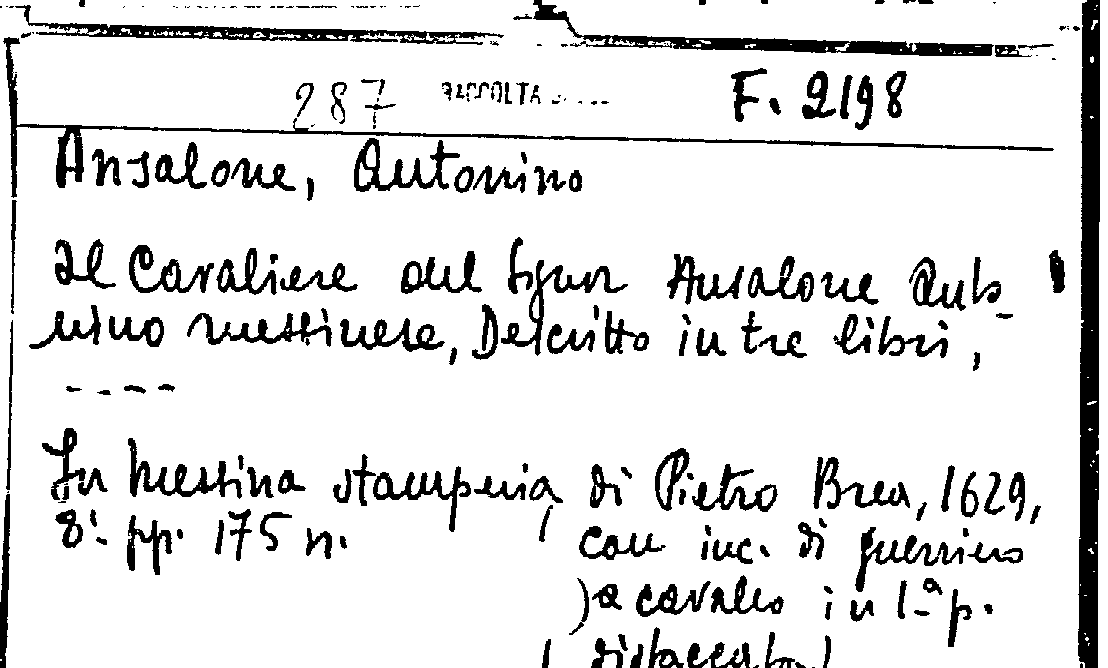 287 RACCOLTA F. 2198
Ansalone, Antonino
Il Cavaliere del Signor Ansalone Anto-
nino messinese, Descritto in tre libri,
----
In Messina stamperia di Pietro Brea, 1629,
8º. pp. 175 n. ( con inc. di guerriero
) a cavallo in 1ª p.
( distaccato)